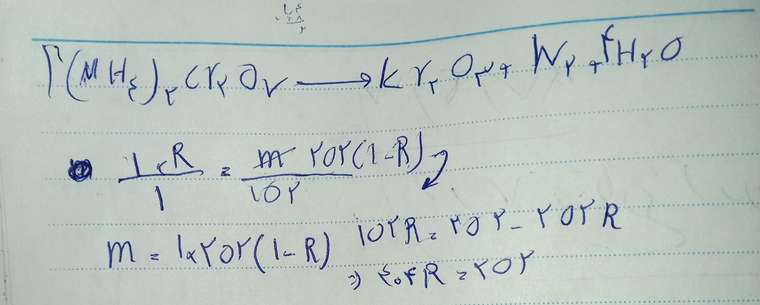 (NH٤)۲Cr۲O۷ → Cr۲O۳ + N۲ + ۴H۲O
R/۱ = m ۲۵۲(۱-R)/۱۵۲
m = ۱×۲۵۲(۱-R) ۱۵۲R = ۲۵۲ - ۲۵۲R
⇒ ٤۰۴R = ۲۵۲